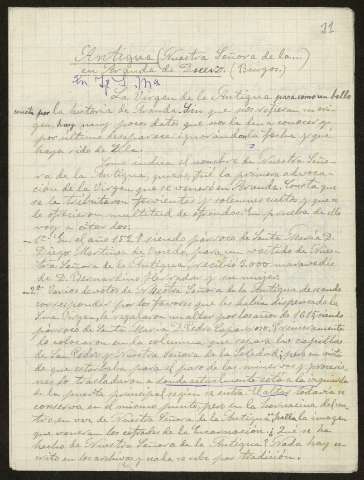 21
Antigua (Nuestra Señora de la...)
en Aranda de Duero. (Burgos.)
La Virgen de la Antigua pasa como un bello
mito por la historia de Aranda. Sin que nos refieran su ori-
gen, hay muy pocos datos que nos la den a conocer y
por último desaparece ignorándose la fecha y qué
haya sido de Ella.
Como indica el nombre de Nuestra Seño-
ra de la Antigua, quizás fué la primera advoca-
ción de la Virgen que se veneró en Aranda. Consta que
se la tributaron fervientes y solemnes cultos y que
le ofrecieron multitud de ofrendas. En prueba de ello
voy a citar dos:
1º En el año 1528 siendo párroco de Santa María D.
Diego Martínez de para un vestido de Nues-
tra Señora de la Antigua, recibió 3.000 maravedís
de D. Bernardino y su mujer.
2º Varios devotos de Nuestra Señora de la Antigua deseando
corresponder por los favores que les había dispensado la
Sma Virgen, le regalaron un altar por los años de 1615, siendo
párroco de Santa María D. Pedro Primeramente
lo colocaron en la columna que separa las capillas
de San Pedro y Nuestra Señora de la Soledad; pero en vista
de que estorbaba para el paso de las mineros y procesio-
nes lo trasladaron a donde actualmente está a la izquierda
de la puerta principal según se entra. El altar todavía se
conserva en el mismo punto, pero en la hornacina del cen-
tro en vez de Nuestra Señora de la Antigua, se halla la imagen
que veneran los cofrades de la Encarnación. ¿Qué se ha
hecho de Nuestra Señora de la Antigua? Nada hay es-
crito en los archivos y nada se sabe por tradición.